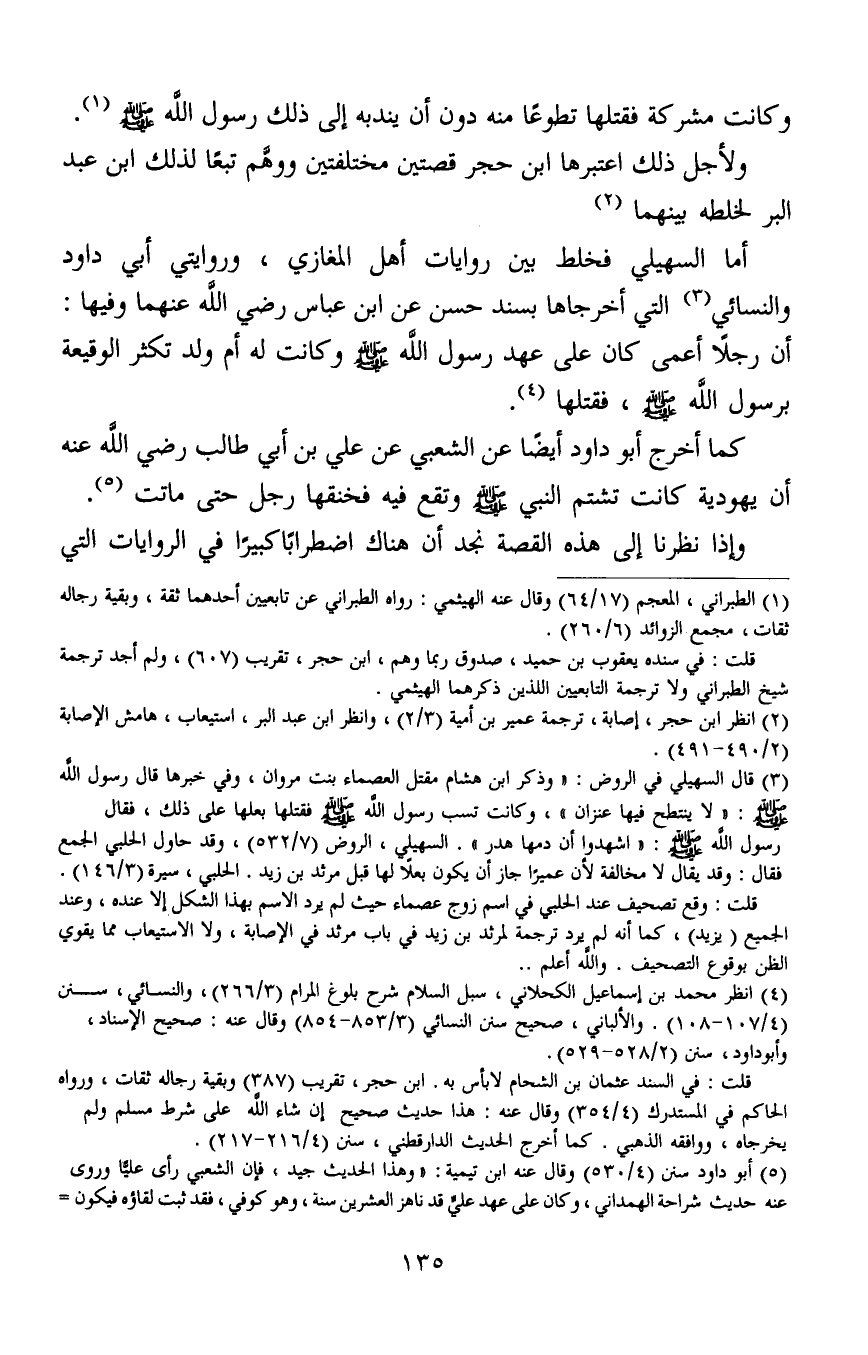 وكانت مشركة فقتلها تطوعًا منه دون أن يندبه إلى ذلك رسول اللَّه ﷺ (١).
ولأجل ذلك اعتبرها ابن حجر قصتين مختلفتين ووهَّم تبعًا لذلك ابن عبد
البر لخلطه بينهما (٢)
أما السهيلي فخلط بين روايات أهل المغازي ، وروايتي أبي داود
والنسائي(٣) التي أخرجاها بسند حسن عن ابن عباس رضي اللَّه عنهما وفيها :
أن رجلًا أعمى كان على عهد رسول اللَّه ﷺ وكانت له أم ولد تكثر الوقيعة
برسول اللَّه ﷺ ، فقتلها (٤).
كما أخرج أبو داود أيضًا عن الشعبي عن علي بن أبي طالب رضي اللَّه عنه
أن يهودية كانت تشتم النبي ﷺ وتقع فيه فخنقها رجل حتى ماتت (٥).
وإذا نظرنا إلى هذه القصة نجد أن هناك اضطرابًا كبيرًا في الروايات التي
(١) الطبراني ، المعجم (٦٤/١٧) وقال عنه الهيثمي : رواه الطبراني عن تابعيين أحدهما ثقة ، وبقية رجاله
ثقات ، مجمع الزوائد (٢٦٠/٦) .
قلت : في سنده يعقوب بن حميد ، صدوق ربما وهم ، ابن حجر ، تقريب (٦٠٧) ، ولم أجد ترجمة
شيخ الطبراني ولا ترجمة التابعيين اللذين ذكرهما الهيثمي .
(٢) انظر ابن حجر ، إصابة ، ترجمة عمير بن أمية (٢/٣) ، وانظر ابن عبد البر ، استيعاب ، هامش الإصابة
(٤٩٠/٢-٤٩١) .
(٣) قال السهيلي في الروض : « وذكر ابن هشام مقتل العصماء بنت مروان ، وفي خبرها قال رسول اللَّه
ﷺ : « لا ينتطح فيها عنزان » ، وكانت تسب رسول اللَّه ﷺ فقتلها بعلها على ذلك ، فقال
رسول اللَّه ﷺ : « اشهدوا أن دمها هدر » . السهيلي ، الروض (٥٣٢/٧) ، وقد حاول الحلبي الجمع
فقال : وقد يقال لا مخالفة لأن عميرًا جاز أن يكون بعلًا لها قبل مرثد بن زيد . الحلبي ، سيرة (١٤٦/٣) .
قلت : وقع تصحيف عند الحلبي في اسم زوج عصماء حيث لم يرد الاسم بهذا الشكل إلا عنده ، وعند
الجميع ( يزيد) ، كما أنه لم يرد ترجمة لمرثد بن زيد في باب مرثد في الإصابة ، ولا الاستيعاب مما يقوي
الظن بوقوع التصحيف . واللَّه أعلم ..
(٤) انظر محمد بن إسماعيل الكحلاني ، سبل السلام شرح بلوغ المرام (٢٦٦/٣) ، والنسائي ، سنن
(١٠٧/٤-١٠٨) . والألباني ، صحيح سنن النسائي (٨٥٣/٣-٨٥٤) وقال عنه : صحيح الإسناد ،
وأبوداود ، سنن (٥٢٨/٢-٥٢٩).
قلت : في السند عثمان بن الشحام لابأس به . ابن حجر ، تقريب (٣٨٧) وبقية رجاله ثقات ، ورواه
الحاكم في المستدرك (٣٥٤/٤) وقال عنه : هذا حديث صحيح إن شاء اللَّه على شرط مسلم ولم
يخرجاه ، ووافقه الذهبي . كما أخرج الحديث الدارقطني ، سنن (٢١٦/٤-٢١٧) .
(٥) أبو داود سنن (٥٣٠/٤) وقال عنه ابن تيمية : « وهذا الحديث جيد ، فإن الشعبي رأى عليًا وروى
عنه حديث شراحة الهمداني ، وكان على عهد عليٍّ قد ناهز العشرين سنة ، وهو كوفي ، فقد ثبت لقاؤه فيكون =
١٣٥